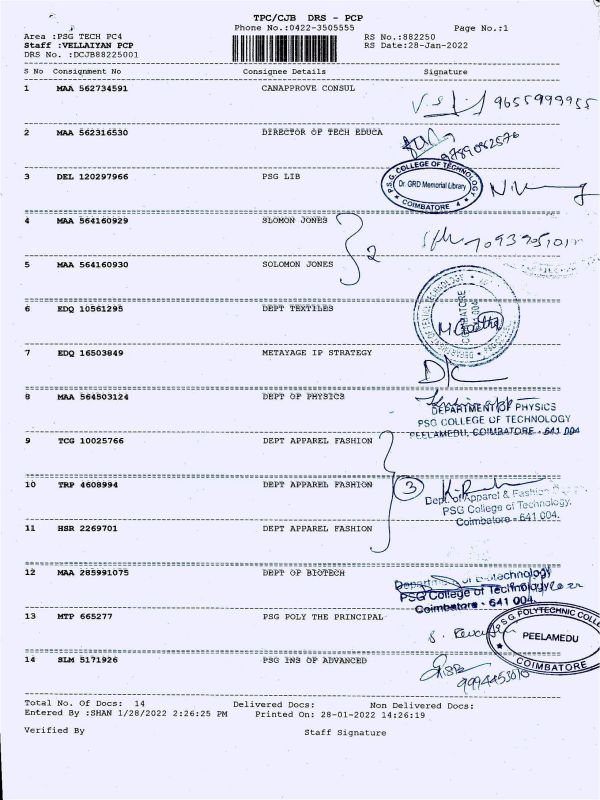 TPC/CJB DRS - PCP
Phone No.:0422-3505555 Page No.:1
Area :PSG TECH PC4 RS No.:882250
Staff :VELLAIYAN PCP RS Date:28-Jan-2022
DRS No. :DCJB88225001
S No Consignment No Consignee Details Signature
1 MAA 562734591 CANAPPROVE CONSUL
9655999955
2 MAA 562316530 DIRECTOR OF TECH EDUCA
9789092576
3 DEL 120297966 PSG LIB
P.S.G. COLLEGE OF TECHNOLOGY
Dr. GRD Memorial Library
COIMBATORE 4
4 MAA 564160929 SLOMON JONES
2
5 MAA 564160930 SOLOMON JONES
6 EDQ 10561295 DEPT TEXTILES
7 EDQ 16503849 METAYAGE IP STRATEGY
8 MAA 564503124 DEPT OF PHYSICS
DEPARTMENT OF PHYSICS
PSG COLLEGE OF TECHNOLOGY
PEELAMEDU, COIMBATORE - 641 004
9 TCG 10025766 DEPT APPAREL FASHION
10 TRP 4608994 DEPT APPAREL FASHION
3
Dept. of Apparel & Fashion
PSG College of Technology,
Coimbatore - 641 004.
11 HSR 2269701 DEPT APPAREL FASHION
12 MAA 285991075 DEPT OF BIOTECH
Department of Biotechnology
PSG College of Technology
Coimbatore - 641 004.
13 MTP 665277 PSG POLY THE PRINCIPAL
P.S.G. POLYTECHNIC COLLE
PEELAMEDU
COIMBATORE
14 SLM 5171926 PSG INS OF ADVANCED
9994453010
Total No. Of Docs: 14 Delivered Docs: Non Delivered Docs:
Entered By :SHAN 1/28/2022 2:26:25 PM Printed On: 28-01-2022 14:26:19
Verified By Staff Signature